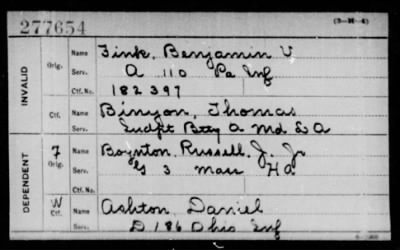 277654
(3-M-4)
INVALID
Orig.
Name Fink, Benjamin V
Serv. A 110 Pa Inf
Ctf. No. 182397
Ctf.
Name Binyon, Thomas
Serv. Indpt Btry A Md L A
DEPENDENT
F
Orig.
Name Boynton, Russell, J. Jr
Serv. G 3 Mass H A
Ctf. No.
W
Ctf.
Name Ashton, Daniel
Serv. D 186 Ohio Inf